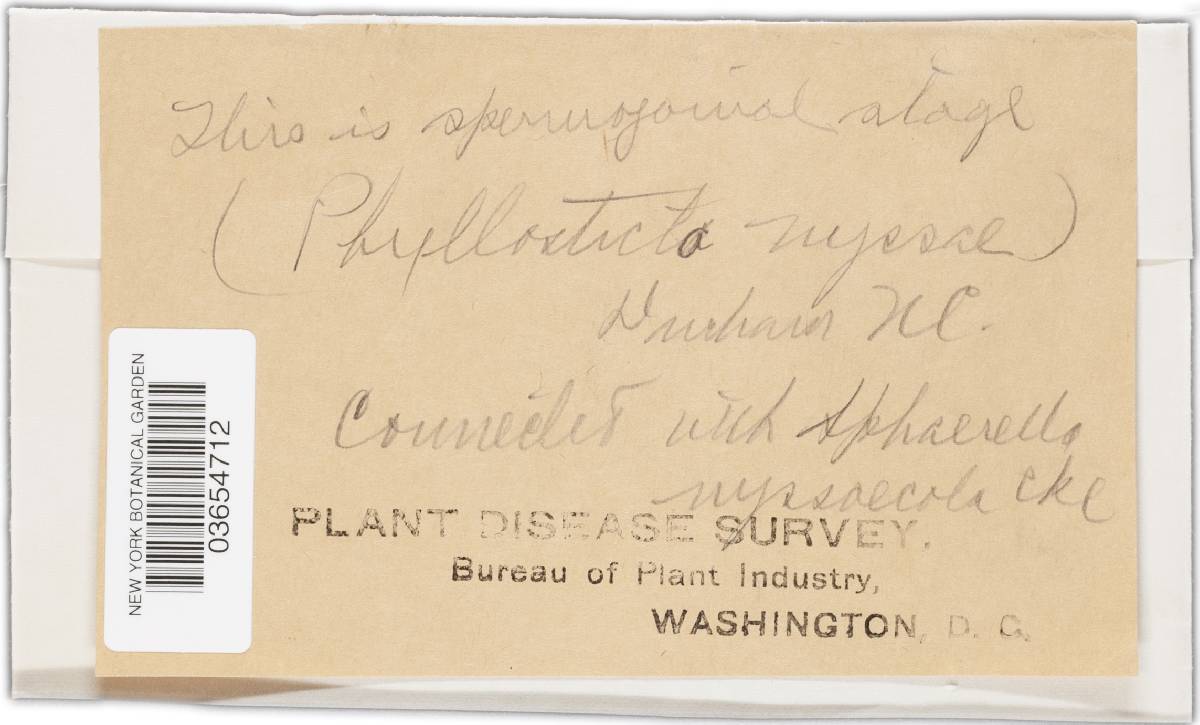 This is spermogonial stage
(Phyllosticta nyssae)
Durham NC.
Connected with Sphaerella
nyssaecola Cke
PLANT DISEASE SURVEY.
Bureau of Plant Industry,
WASHINGTON, D. C.
NEW YORK BOTANICAL GARDEN
03654712